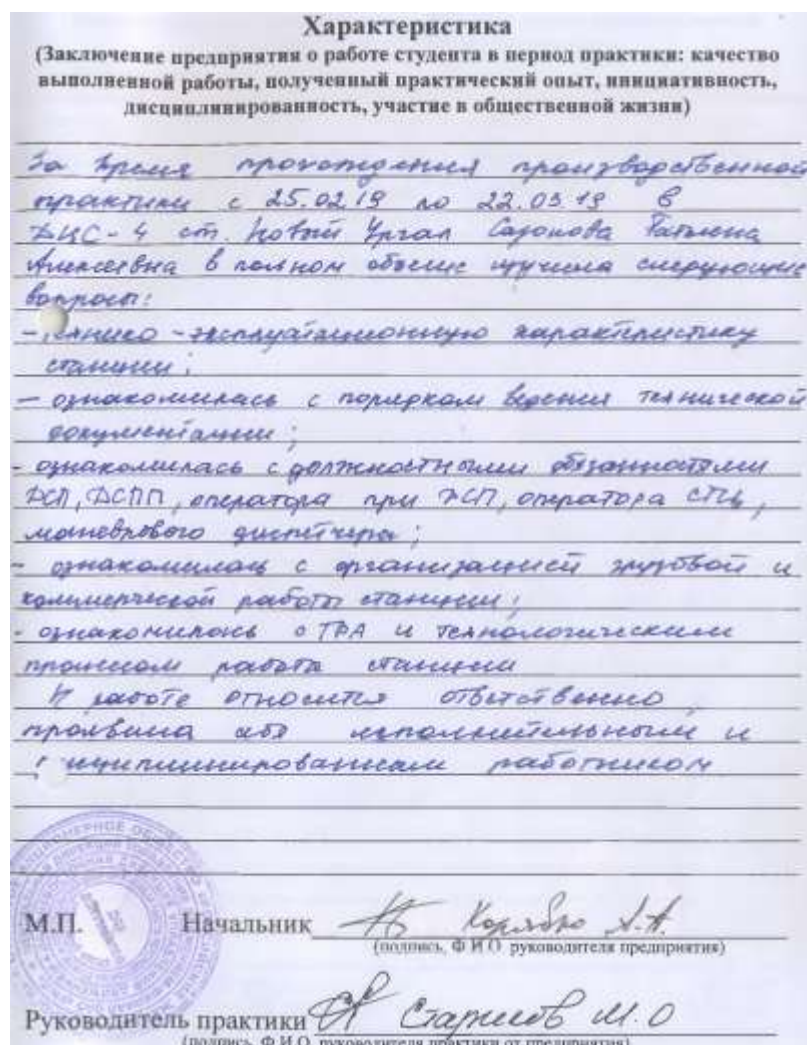 Характеристика
(Заключение предприятия о работе студента в период практики: качество
выполненной работы, полученный практический опыт, инициативность,
дисциплинированность, участие в общественной жизни)
За время прохождения производственной
практики с 25.02.19 по 22.03.19 в
ДЦС-4 ст. Новый Ургал Сазонова Татьяна
Алексеевна в полном объеме изучила следующие
вопросы:
- технико-эксплуатационную характеристику
станции;
- ознакомилась с порядком ведения технической
документации;
- ознакомилась с должностными обязанностями
ДСП, ДСПП, оператора при ДСП, оператора СТЦ,
маневрового диспетчера;
- ознакомилась с организацией грузовой и
коммерческой работы станции;
- ознакомилась с ТРА и технологическим
процессом работы станции
К работе относится ответственно,
проявила себя исполнительным и
дисциплинированным работником
М.П. Начальник А.А.
(подпись, Ф.И.О. руководителя предприятия)
Руководитель практики М.О
(подпись, Ф.И.О. руководителя практики от предприятия)